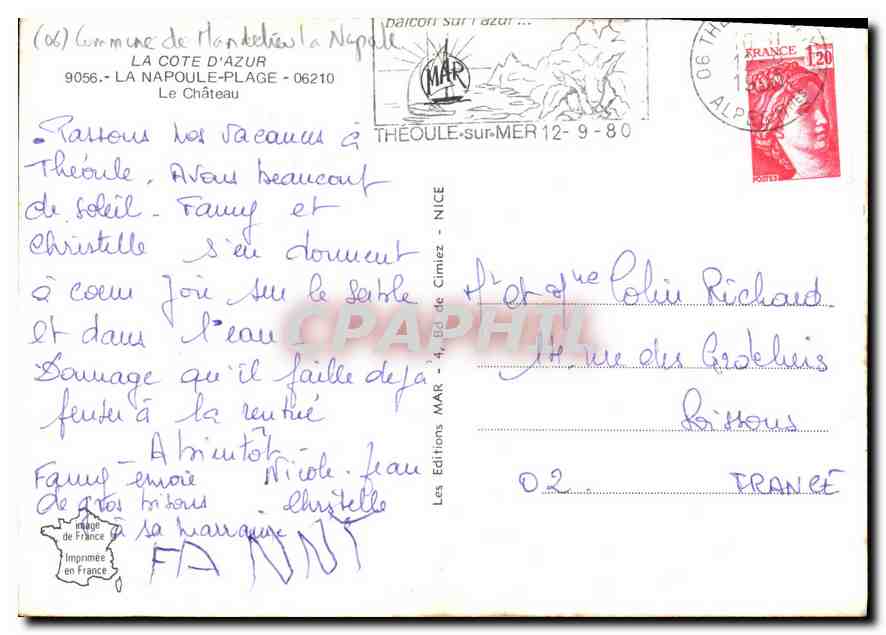 (06) Commune de Mandelieu la Napoule
LA COTE D'AZUR
9056.- LA NAPOULE-PLAGE - 06210
Le Château
balcon sur l'azur...
MAR
THÉOULE-sur-MER 12-9-80
06 THÉ
ALPES
FRANCE 1,20
POSTES
Passons nos vacances à
Théoule. Avons beaucoup
de soleil. Fanny et
Christelle s'en donnent
à coeur joie sur le sable
et dans l'eau.
Dommage qu'il faille déjà
penser à la rentrée
A bientôt.
Fanny envoie Nicole. Jean
de gros bisous Christelle
à sa marraine
FANNY
Image
de France
Imprimée
en France
Les Editions MAR - 4, Bd de Cimiez - NICE
CPAPHIL
Mr et Mme Colin Richard
rue des
Soissons
02. FRANCE